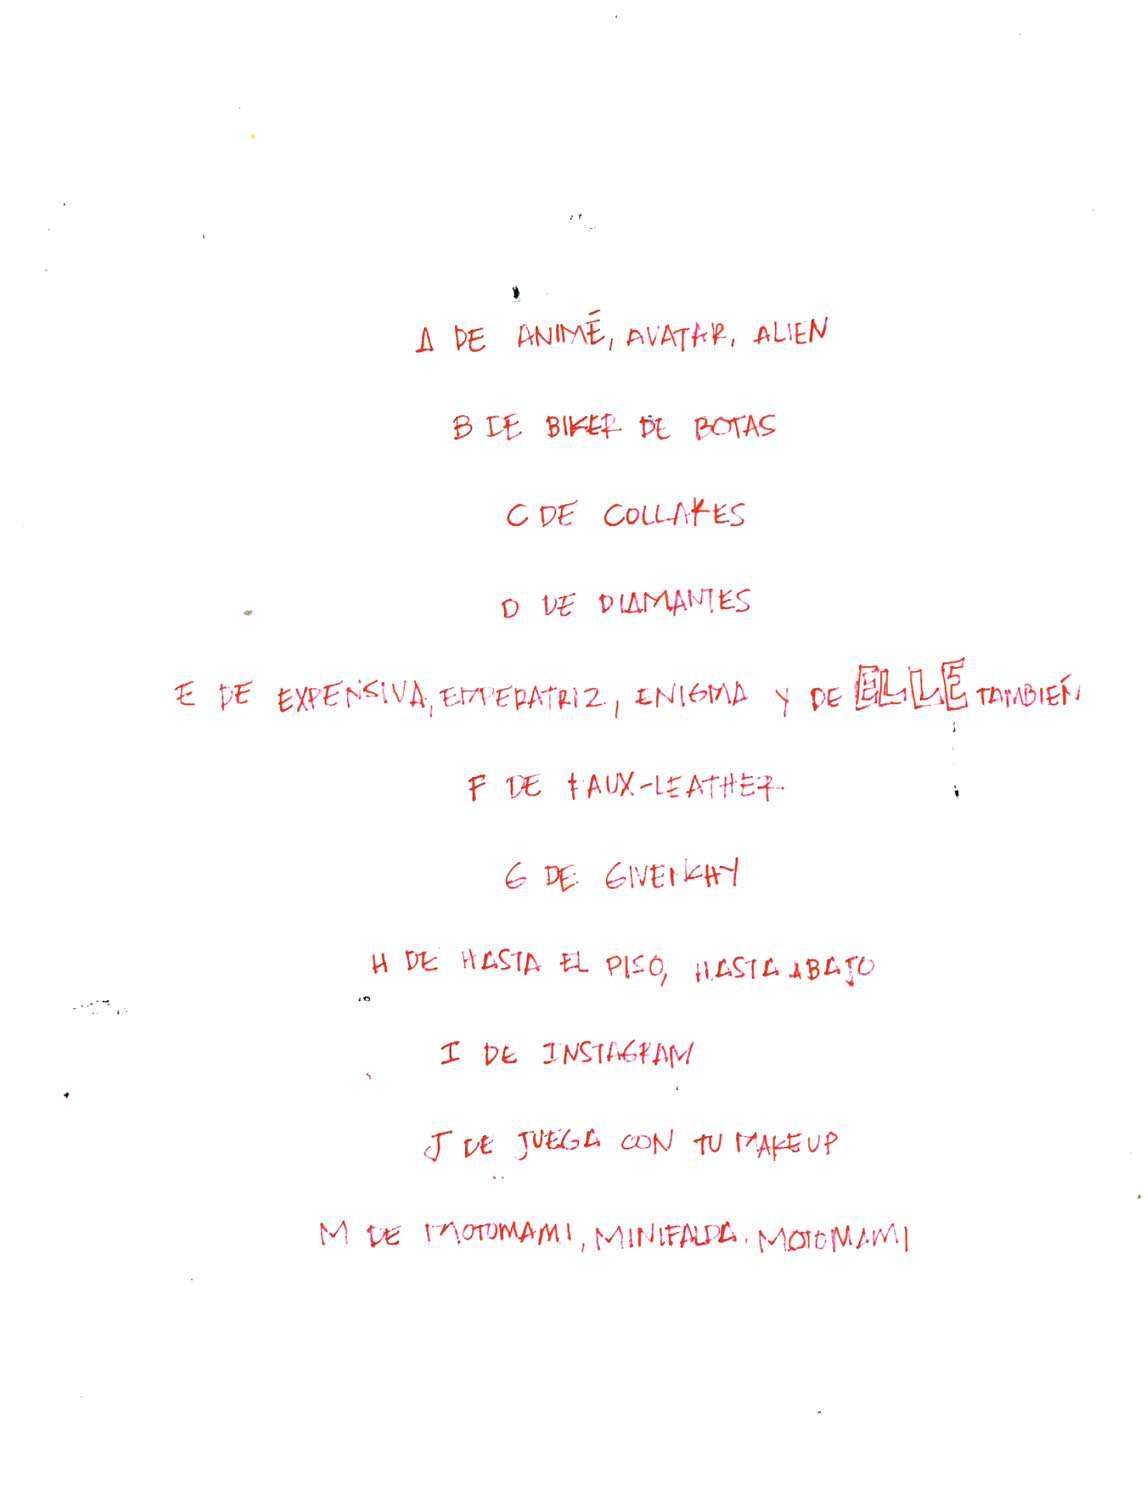 A DE ANIMÉ, AVATAR, ALIEN
B DE BIKER DE BOTAS
C DE COLLARES
D DE DIAMANTES
E DE EXPENSIVA, EMPERATRIZ, ENIGMA Y DE ELLE TAMBIÉN
F DE FAUX-LEATHER
G DE GIVENCHY
H DE HASTA EL PISO, HASTA ABAJO
I DE INSTAGRAM
J DE JUEGA CON TU MAKEUP
M DE MOTOMAMI, MINIFALDA. MOTOMAMI